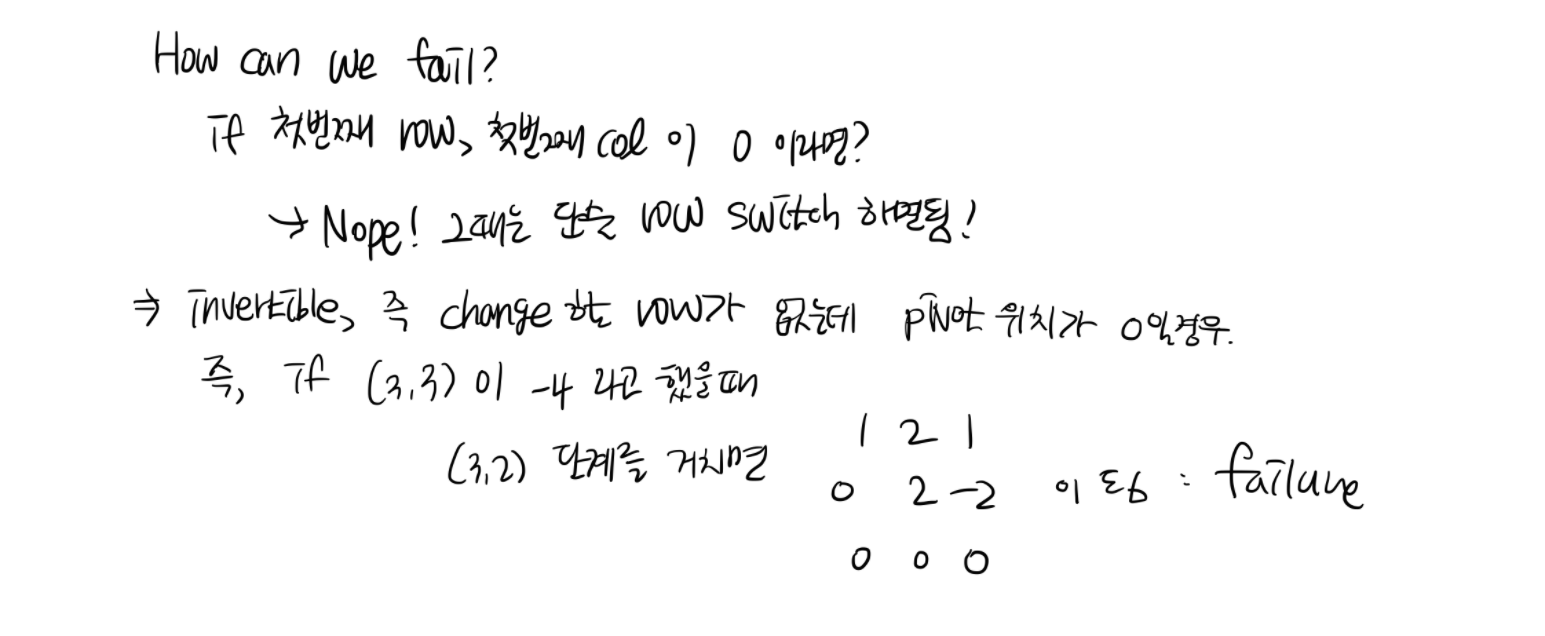 How can we fail?
if 첫번째 row, 첫번째 col 이 0 이라면?
→ Nope! 그때는 단순 row switch 하면됨!
⇒ invertible, 즉 change 할 row가 없는데 pivot 위치가 0일경우.
즉, if (3,3) 이 -4 라고 했을때
(3,2) 단계를 거치면
1 2 1
0 2 -2 이 됨 : failure
0 0 0